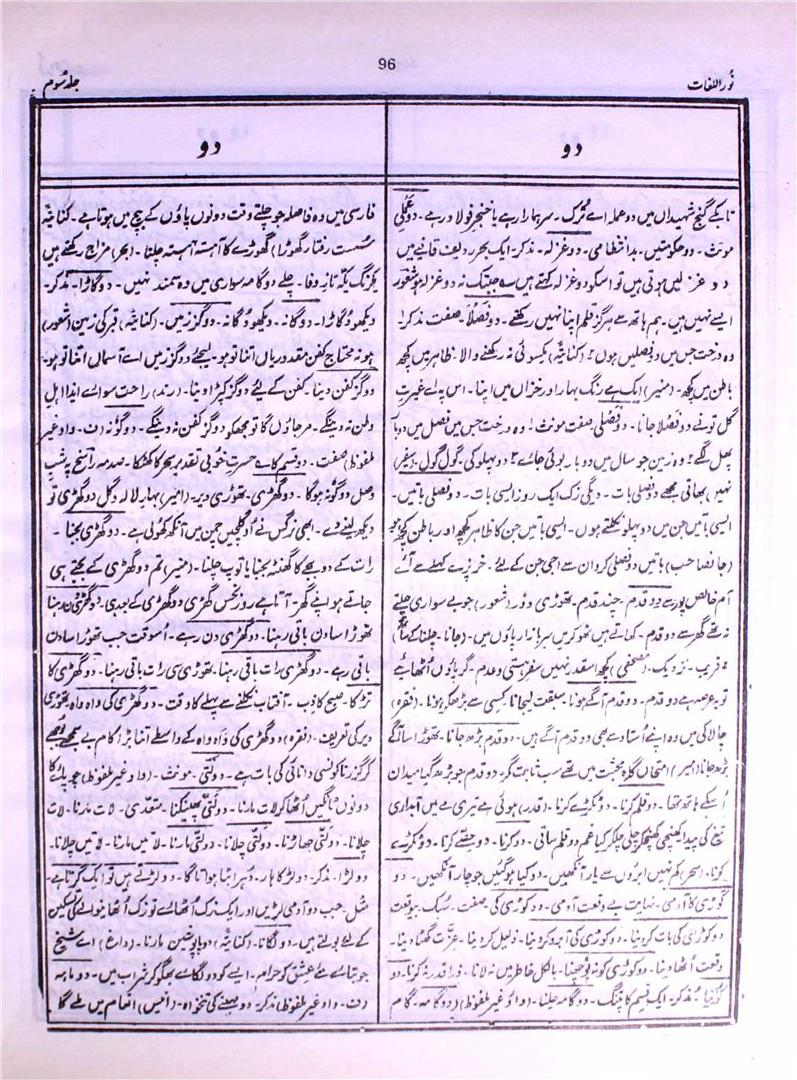 96
نُور اللغات
جلد سُوم
دو
دو
تاکے گنج شہیداں میں دو عملہ اے تُرک۔ سر ہمارا رہے یا خنجر فولاد رہے۔ دو عملی
مونث۔ دو حکومتیں۔ بدانتظامی۔ دوغزلہ۔ مذکر۔ ایک بحر ردیف قافیے میں
دو غزلیں ہوتی ہیں تو اسکو دو غزلہ کہتے ہیں
ایسے نہیں ہیں۔ ہم ہاتھ سے ہرگز قلم اپنا نہیں رکھتے۔ دو فصلا۔ صفت مذکر ا
وہ درخت جس میں دو فصلیں ہوں ۲ (کنایۃً) یکسوئی نہ رکھنے والا۔ ظاہر میں کچھ
باطن میں کچھ۔ (منیر) ایک ہے رنگ بہار اور خزاں میں اپنا۔ اس پہ اے غیرتِ
گل تونے دو فصلا جانا۔ دو فصلی صفت مونث ا وہ درخت جس میں فصل میں دوبار
پھل لگے ۲ وہ زمین جو سال میں دو بار بوئی جائے ۳ دو پہلو کی گول گول۔
نہیں بھاتی مجھے دو فصلی بات۔ دیگی زک ایک روز ایسی بات۔ دو فصلی باتیں۔
ایسی باتیں جن میں دو پہلو نکلتے ہوں۔ ایسی باتیں جن کا ظاہر کچھ اور باطن کچھ ہو
(جانصاحب) باتیں دو فصلی کرو ان سے اجی جن کے لئے۔ خربزے کھلے آئے
آم خالص پور سے۔ دو قدم۔ چند قدم۔ تھوڑی دور (شعور) جو بے سواری چلتے
نہ تھے گھر سے دو قدم۔ کھاتے ہیں ٹھوکریں سر بازار پاؤں میں۔ (جانا۔ چلنا کے ساتھ)
۲ قریب۔ نزدیک۔ (مصحفی) کچھ اسقدر نہیں سفر ہستی و عدم۔ گر پاؤں اٹھائیے
تو یہ عرصہ ہے دو قدم۔ دو قدم آگے ہونا۔ سبقت لیجانا۔ کسی سے بڑھکر ہونا۔ (فقرہ)
چالاکی میں وہ اپنے اُستاد سے بھی دو قدم آگے ہیں۔ دو قدم بڑھ جانا۔ تھوڑا سا آگے
بڑھ جانا (امیر) امتحاں گاہ محبت میں تھے سب ثابت گر۔ دو قدم جو بڑھ گیا میدان
اُسکے ہاتھ تھا۔ دو قلم کرنا۔ دو ٹکڑے کرنا۔ (قدر) ہوئی ہے تیری مے میں آبداری
تیغ کی پیدا کھنچی کھنچکر چلی چلکر کیا غم دو قلم ساقی۔ دو کرنا۔ دو حصّے کرنا۔ دو ٹکڑے
کرنا۔ (سحر) کم نہیں ابرؤں سے یار آنکھیں۔ دو کیا ہوگئیں جو چار آنکھیں۔ دو
کوڑی کا آدمی۔ نہایت بے وقعت آدمی۔ دو کوڑی کی صفت۔ سُبک۔ بیوقعت
دو کوڑی کی بات کر دینا۔ دو کوڑی کی آبرو کر دینا۔ ذلیل کر دینا۔ عزّت گھٹا دینا۔
وقعت اُٹھا دینا۔ دو کوڑی کو نہ پوچھنا۔ بالکل خاطر میں نہ لانا۔ ذرا قدر نہ کرنا۔ دو
کونیا۔ مذکر۔ ایک قسم کا پتنگ۔ دو گامہ چلنا۔ (واؤ غیر ملفوظ) (دو گامہ۔ گام
فارسی میں وہ فاصلہ جو چلتے وقت دونوں پاؤں کے بیچ میں ہوتا ہے۔ کنایۃً
سُست رفتار گھوڑا) گھوڑے کا آہستہ آہستہ چلنا۔ (بحر) مزاج رکھتے ہیں
یکرنگ یکّہ تاز وفا۔ چلے دو گامہ سواری میں وہ سمند نہیں۔ دو گاڑا۔ مذکر۔
دیکھو دُگاڑا۔ دوگانہ۔ دیکھو دُگانہ۔ دو گز زمیں۔ (کنایۃً) قبر کی زمین (شعور)
ہو نہ محتاج کفن مقدور یاں اتنا تو ہو۔ لیجئے دو گز زمیں اے آسماں اتنا تو ہو۔
دو گز کفن دینا۔ کفن کے لئے دو گز کپڑا دینا۔ (رند) راحت سوائے ایذا اہل
وطن نہ دینگے۔ مر جاؤں گا تو مجھکو دو گز کفن نہ دینگے۔ دو گونہ (ف۔ واو غیر
ملفوظ) صفت۔ دو قسم کا ہے حسرتِ خوبی تقدیر ہجر کا کھٹکا۔ صدمہ رانج بہ شبِ
وصل دو گونہ ہوگا۔ دو گھڑی۔ تھوڑی دیر۔ (امیر) بہار لالہ و گل دو گھڑی تو
دیکھ لینے دے۔ ابھی نرگس نے اوگلچیں چمن میں آنکھ کھولی ہے۔ دو گھڑی بجنا۔
رات کے دو بجے کا گھنٹہ بجنا یا توپ چلنا۔ (منیر) تم دو گھڑی کے بجتے ہی
جاتے ہو اپنے گھر۔ آتا ہے روز نحس گھڑی دو گھڑی کے بعد۔ دو گھڑی دن رہنا
تھوڑا سا دن باقی رہنا۔ دو گھڑی دن رہے۔ اُسوقت جب تھوڑا سا دن
باقی رہے۔ دو گھڑی رات باقی رہنا۔ تھوڑی سی رات باقی رہنا۔ دو گھڑی کا
تڑکا۔ صبح کاذب۔ آفتاب نکلنے سے پہلے کا وقت۔ دو گھڑی کی واہ واہ۔ تھوڑی
دیر کی تعریف۔ (فقرہ) دو گھڑی کی واہ واہ کے واسطے اتنا بڑا کام بے سمجھے بوجھے
کر گزرنا کونسی دانائی کی بات ہے۔ دولتّی۔ مونث۔ (واو غیر ملفوظ) چوپائے کا
دونوں ٹانگیں اُٹھا کر لات مارنا۔ دولتّی پھینکنا۔ متعدی۔ لات مارنا۔ لات
چلانا۔ دولتّی جھاڑنا۔ دولتّی چلانا۔ دولتّی مارنا۔ لاتیں مارنا۔ لاتیں چلانا۔
دولڑا۔ مذکر۔ دولڑ کا ہار۔ دُہرا بٹا ہوا تاگا۔ دو لڑتے ہیں تو ایک گرتا ہے۔
مثل۔ جب دو آدمی لڑیں اور ایک زک اُٹھائے تو زک اُٹھانیوالے کی تسکین
کے لئے بولتے ہیں۔ دو لگانا۔ (کنایۃً) دو پاپوشیں مارنا۔ (داغ) اے شیخ
جو بتائے مئے عشق کو حرام۔ ایسے کو دو لگائے بھگو کر شراب میں۔ دو ماہہ
(ف۔ واو غیر ملفوظ) مذکر۔ دو مہینے کی تنخواہ۔ (انیس) انعام میں ملے گا